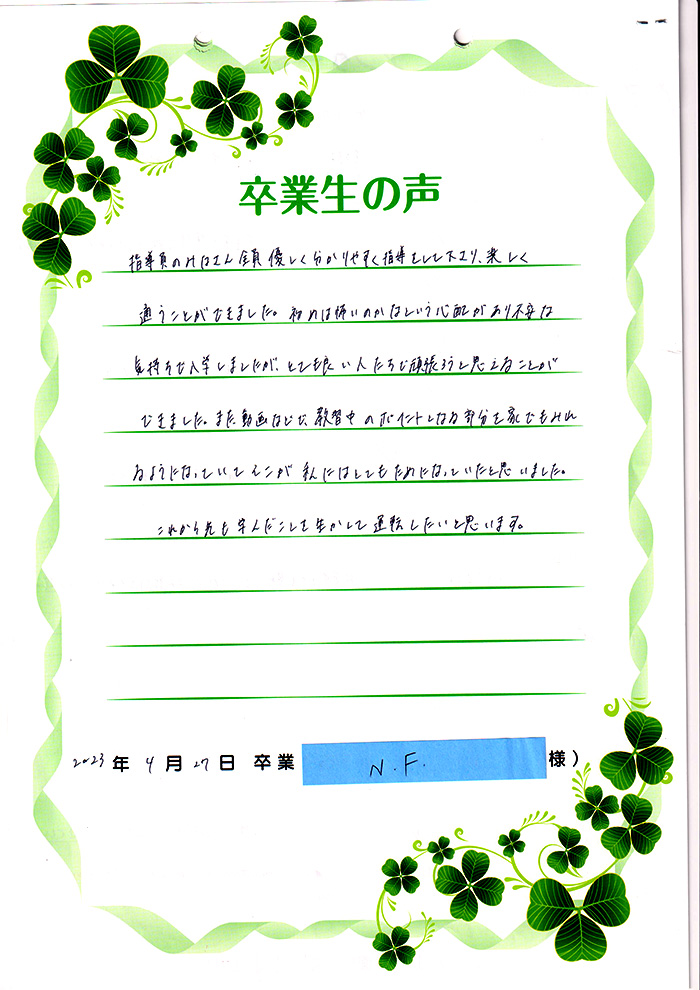 卒業生の声
指導員のみなさん全員優しく分かりやすく指導をして下さり、楽しく
通うことができました。初めは怖いのかなという心配があり不安な
気持ちで入学しましたが、とても良い人たちで頑張ろうと思えることが
できました。また、動画などで、教習中のポイントとなる部分を家でもみれ
るようになっていてそこが私にはとてもためになっていたと思いました。
これから先も学んだことを生かして運転したいと思います。
2023年4月27日 卒業 N.F. 様)